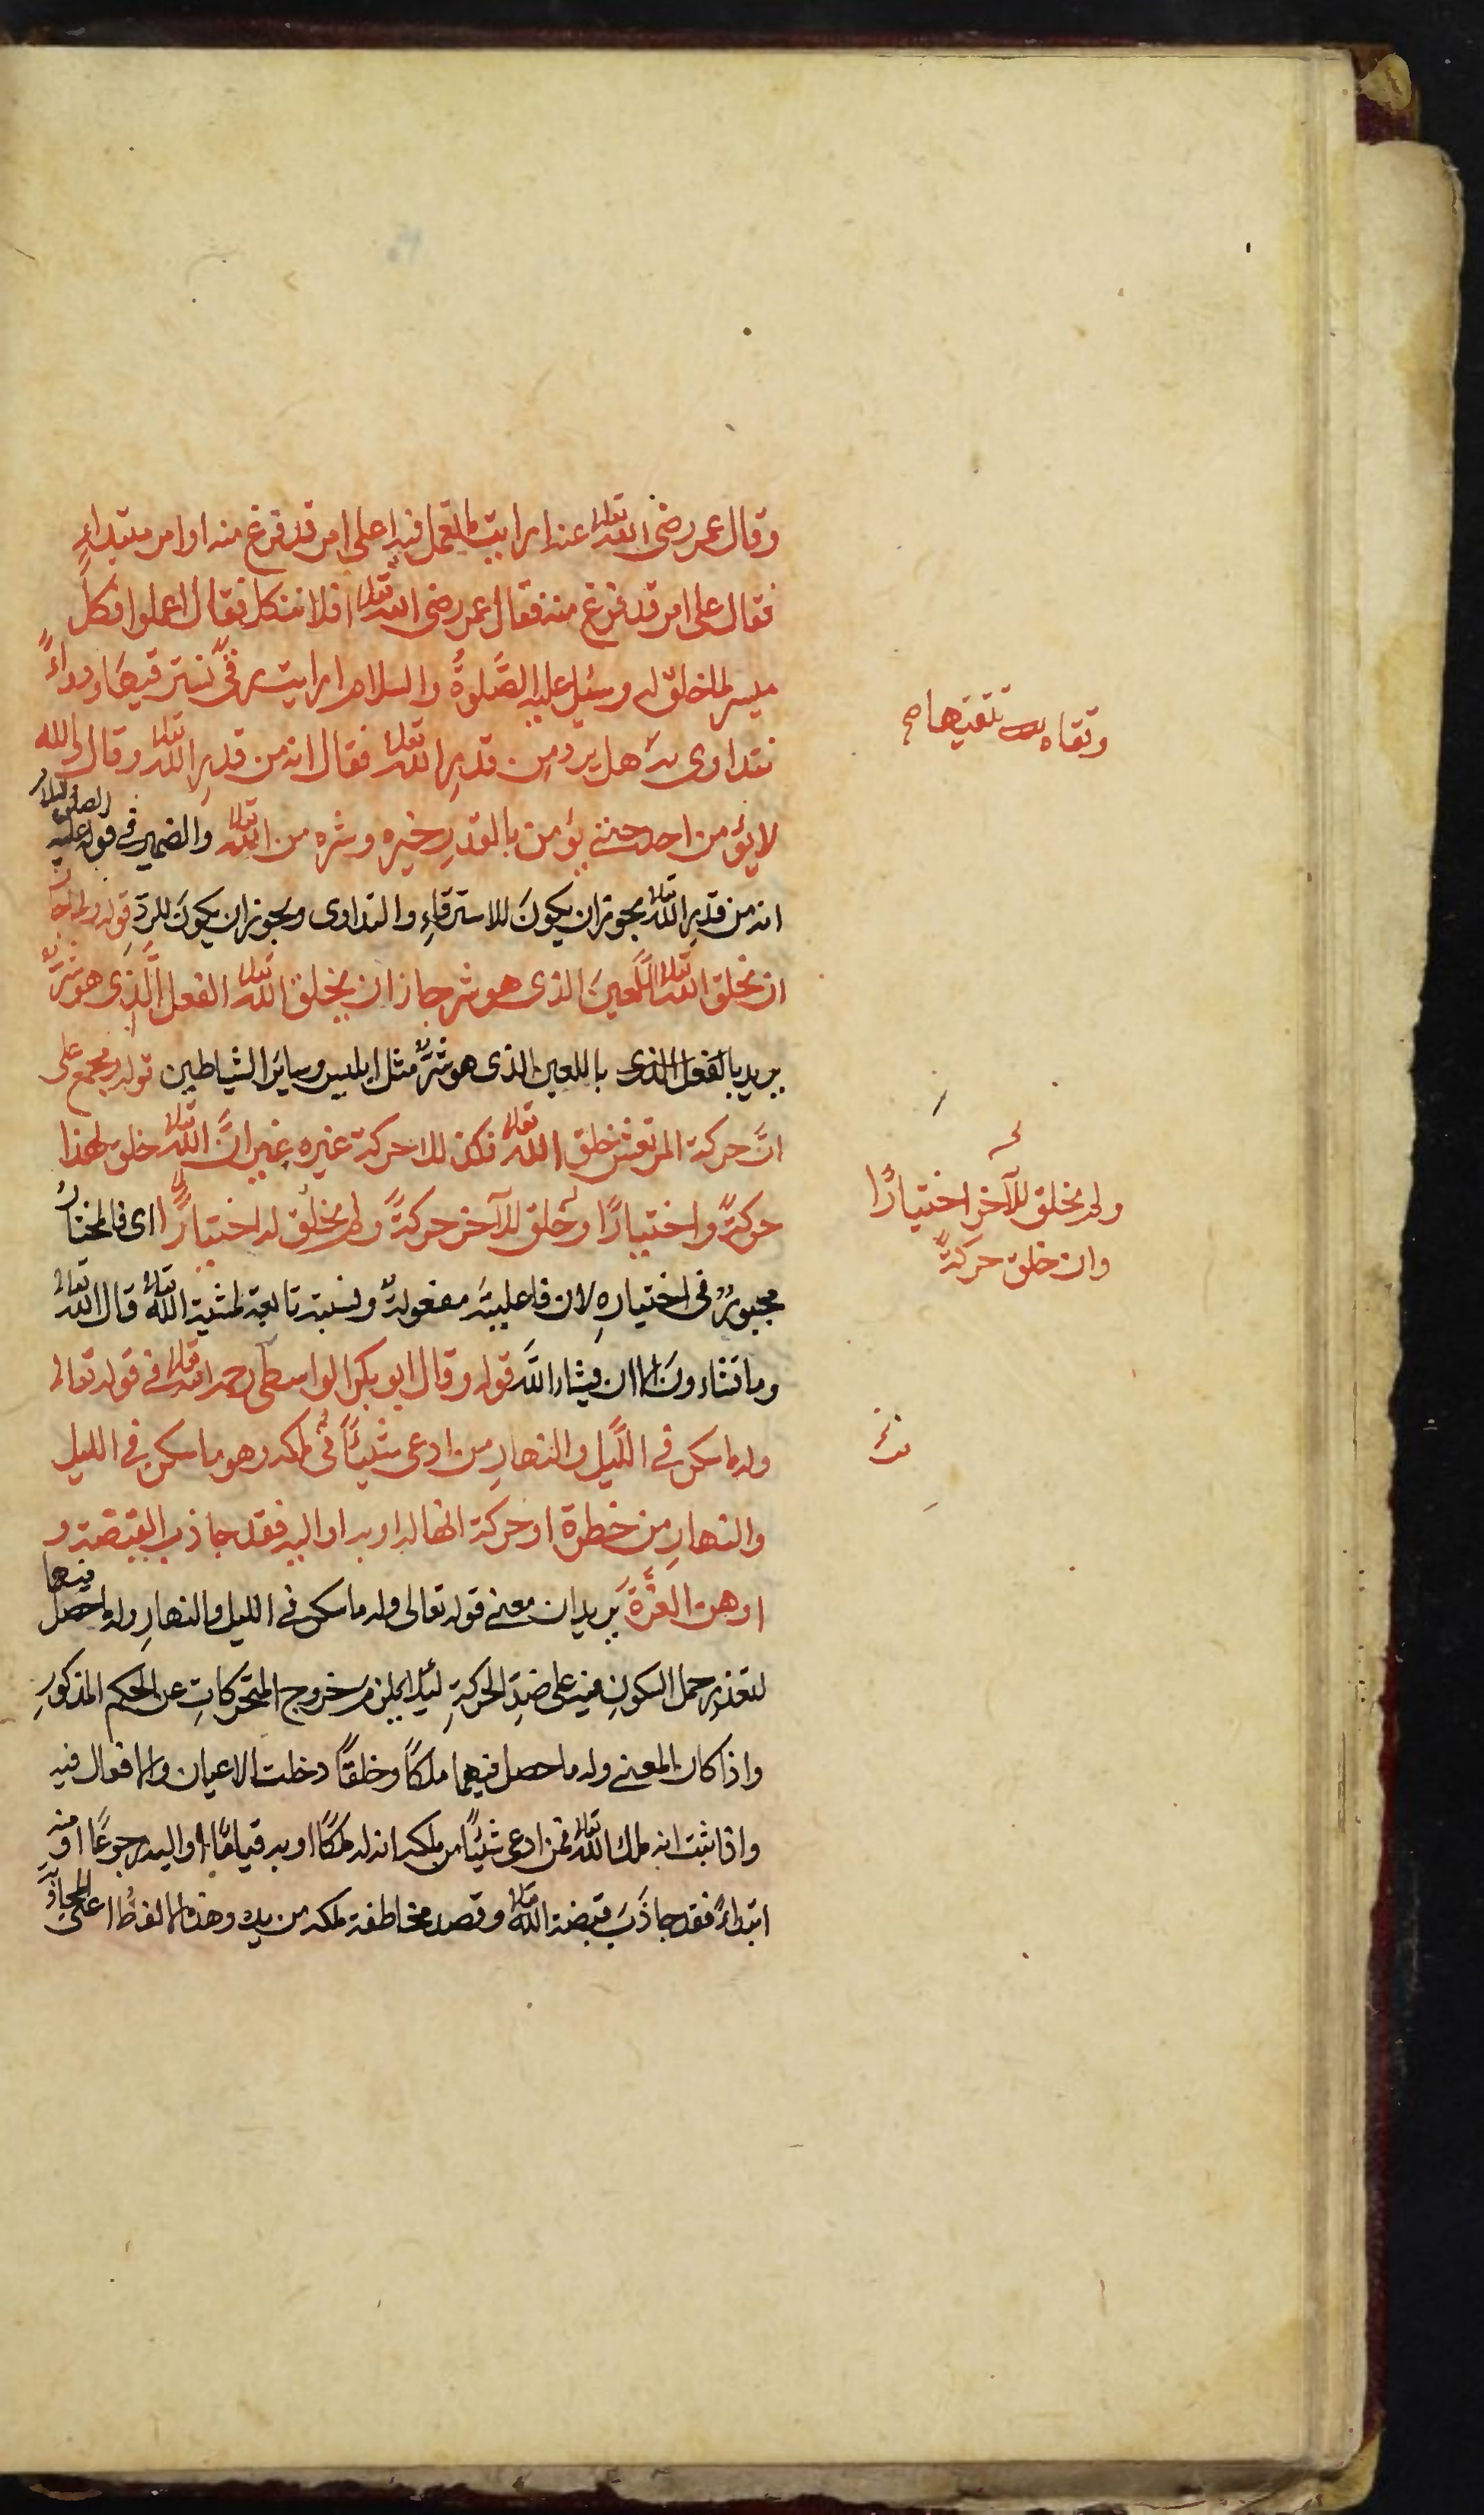 وقال عمر رضى الله تعالى عنه ارايت ما نعمل فيه اعلى امر قد فرغ منه او امر مبتداء
فقال على امر قد فرغ منه فقال عمر رضى الله تعالى افلا نتكل فقال اعملوا فكلٌ
ميسر لما خلق له وسئل عليه الصَّلوةُ والسلام ارايت رقىً نسترقيها ودواءً
نتداوى به هل يرد من قدرِ الله تعالى فقال انه من قدرِ الله تعالى وقال والله
لا يؤمن احد حتى يؤمن بالقدرِ خيره وشره من الله تعالى والضمير في قوله عليه الصلوة والسلام
انه من قدرِ الله تعالى يجوز ان يكونَ للاسترقاءِ والتداوى ويجوز ان يكونَ للردّ قوله ولما جاز
ان يخلق الله تعالى اللَّعينَ الذى هو شر جاز ان يخلق الله تعالى الفعل الَّذِى هو شرٌّ
يريد بالفعل الذى باللعين الذى هو شرٌّ مثل ابليس وساير الشياطين قوله ومجمع على
انَّ حركة المرتعش خلق الله تعالى فكذلك حركة غيره غير انَّ الله تعالى خلق لهذا
حركةً واختيارًا وخلق للآخر حركةً ولم يخلق له اختيارًا اى فالمختارُ
مجبورٌ فى اختيارهِ لان فاعليته مفعولةٌ ونسبته تابعة لمشية الله تعالى قال الله تعالى
وما تشاءونَ الا ان يشاء اللَّه قوله وقال ابو بكر الواسطى رحمه الله تعالى في قوله تعالى
وله ما سكن في اللَّيل والنهارِ من ادعى شيئًا في ملكه وهو ما سكن في الليل
والنهارِ من خطرة او حركة انها له او به او اليه فقد جاذب القبضة و
اوهن العزَّةَ يريد ان معنى قوله تعالى وله ما سكن في الليل والنهارِ وله ما حصل فيهما
لتعذر حمل السكونِ فيه على ضدِ الحركةِ ليلا يلزم خروج المتحركاتِ عن الحكم المذكورِ
واذا كان المعنى وله ما حصل فيهما ملكًا وخلقًا دخلت الاعيان والافعال فيه
واذا ثبت انه ملك الله تعالى فمن ادعى شيئًا من ملكه انه له ملكًا او به قيامًا او اليه رجوعًا او منه
ابتداءً فقد جاذَبَ قبضة الله تعالى وقصد مخاطفة ملكه من يده وهذه الالفاظ على المجاز
وتقاه نتقيها صح
ولم يخلق للآخر اختيارًا
وان خلق حركةً